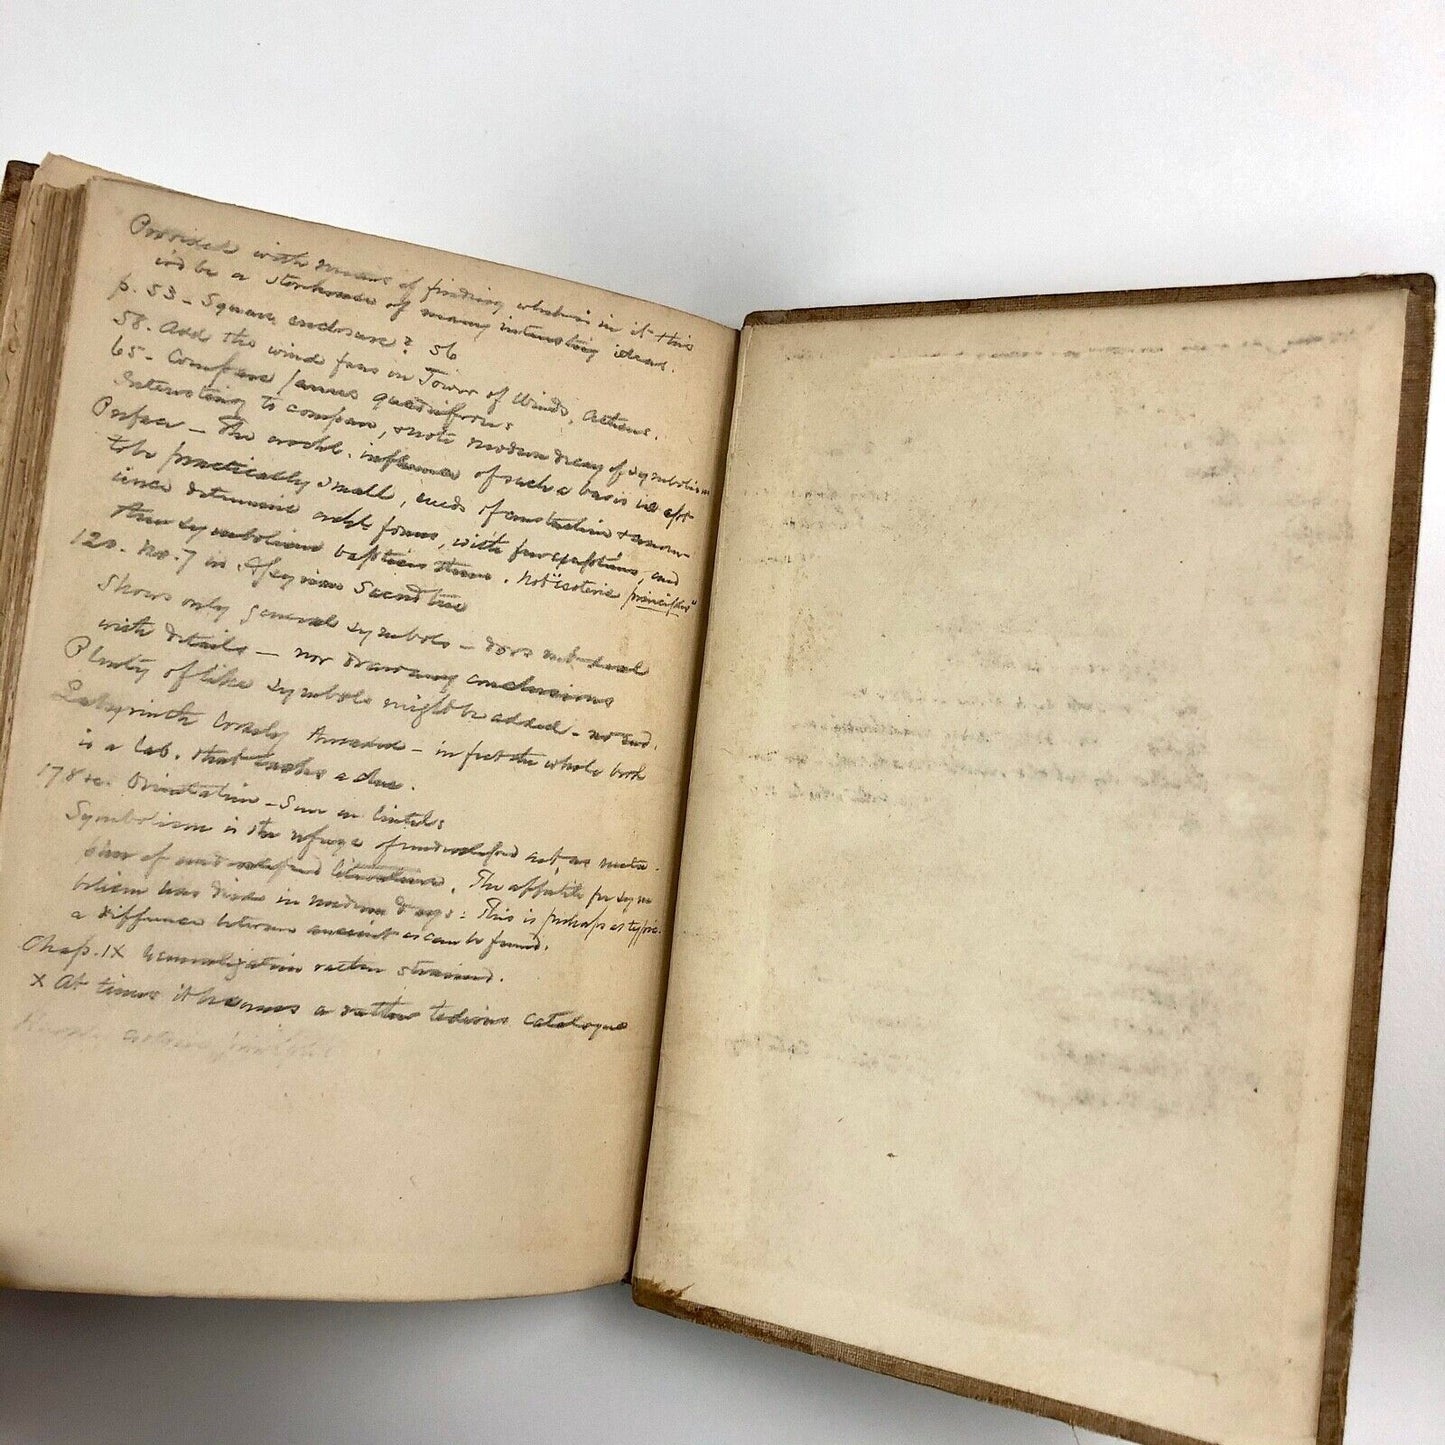 Provided with means of finding what is in it this
wd be a storehouse of many interesting ideas.
p. 53 - Square enclosure? 56
58. Add the wind fans on Tower of Winds, Athens.
65 - Compare Janus quadrifrons
Interesting to compare, & note modern decay of symbolism
Preface - The archl. influence of such a basis is apt
to be practically small, needs of construction &
determine archl forms, with few exceptions, and
then symbolism baptises them. Not "esoteric principles"
120. No. 7 in Assyrian Sacred tree
Shows only general symbols - does not deal
with details - nor draw any conclusions
Plenty of like symbols might be added - no end.
Labyrinth loosely treated - in fact the whole book
is a lab. that lacks a clue.
178 &c. Orientation - Sun on lintels
Symbolism is the refuge of undeveloped art, as
of undeveloped literature. The appetite for sym
bolism has died in modern days: This is perhaps as typical
a difference between ancient as can be found.
Chap. IX Generalization rather strained.
X At times it becomes a rather tedious catalogue